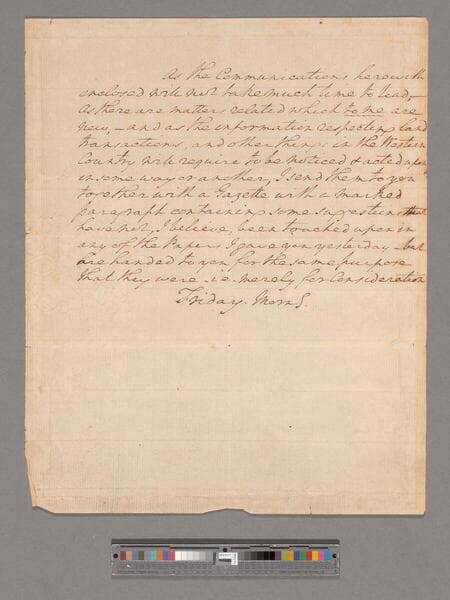 As the Communications herewith
enclosed will not take much time to read,—
as there are matters related which to me are
new,—and as the information respecting land
transactions, and other things in the Western
Country will require to be noticed & acted upon
in some way or another, I send them to you
together with a Gazette with a marked
paragraph containing some sugestions that
have not, I believe, been touched upon in
any of the Papers I gave you yesterday—but
are handed to you for the same purpose
that they were i.e. merely for Consideration
Friday. Morng.